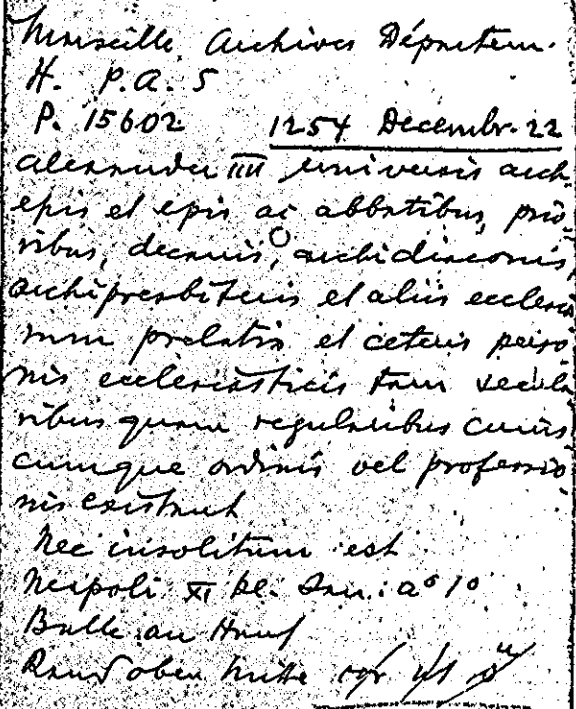 Marseille Archives Départem.
H. P.A. 5
P. 15602 1254 Decembr. 22
Alexander IIII universis arch
epis et epis ac abbatibus, prio
ribus, decanis, archidiaconis,
archipresbiteris et aliis ecclesia
rum prelatis et ceteris perso
nis ecclesiasticis tam secula
ribus quam regularibus cuius
cumque ordinis vel professio
nis existant
Nec insolitum est
Neapoli XI kl. Jan. a° 1°
Bulle an Hanf
Rand oben Mitte